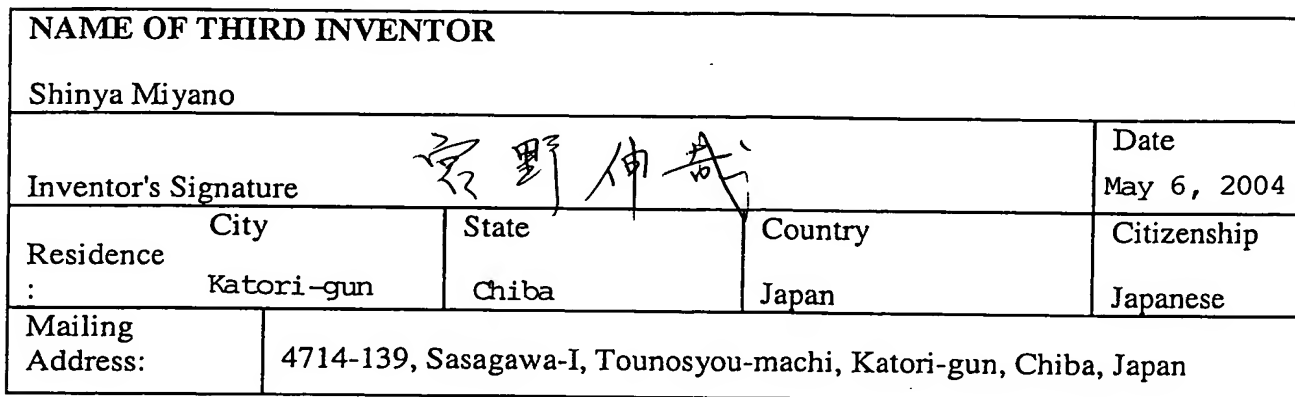 NAME OF THIRD INVENTOR
Shinya Miyano
Inventor's Signature 宮野伸哉 Date
May 6, 2004
Residence : City Katori-gun State Chiba Country Japan Citizenship Japanese
Mailing Address: 4714-139, Sasagawa-I, Tounosyou-machi, Katori-gun, Chiba, Japan